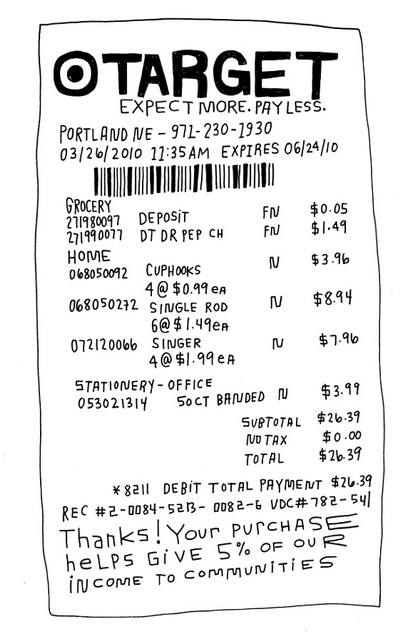 TARGET
EXPECT MORE. PAY LESS.
PORTLAND NE - 971-230-1930
03/26/2010 11:35AM EXPIRES 06/24/10
GROCERY
271980097 DEPOSIT FN $0.05
271990077 DT DR PEP CH FN $1.49
HOME
068050092 CUPHOOKS N $3.96
4@$0.99EA
068050272 SINGLE ROD N $8.94
6@$1.49EA
072120066 SINGER N $7.96
4@$1.99EA
STATIONERY-OFFICE
053021314 50CT BANDED N $3.99
SUBTOTAL $26.39
NO TAX $0.00
TOTAL $26.39
*8211 DEBIT TOTAL PAYMENT $26.39
REC #2-0084-5213-0082-6 VDC#782-541
Thanks! Your PURCHASE
heLPS GIVE 5% OF OUR
INCOME TO COMMUNITIES